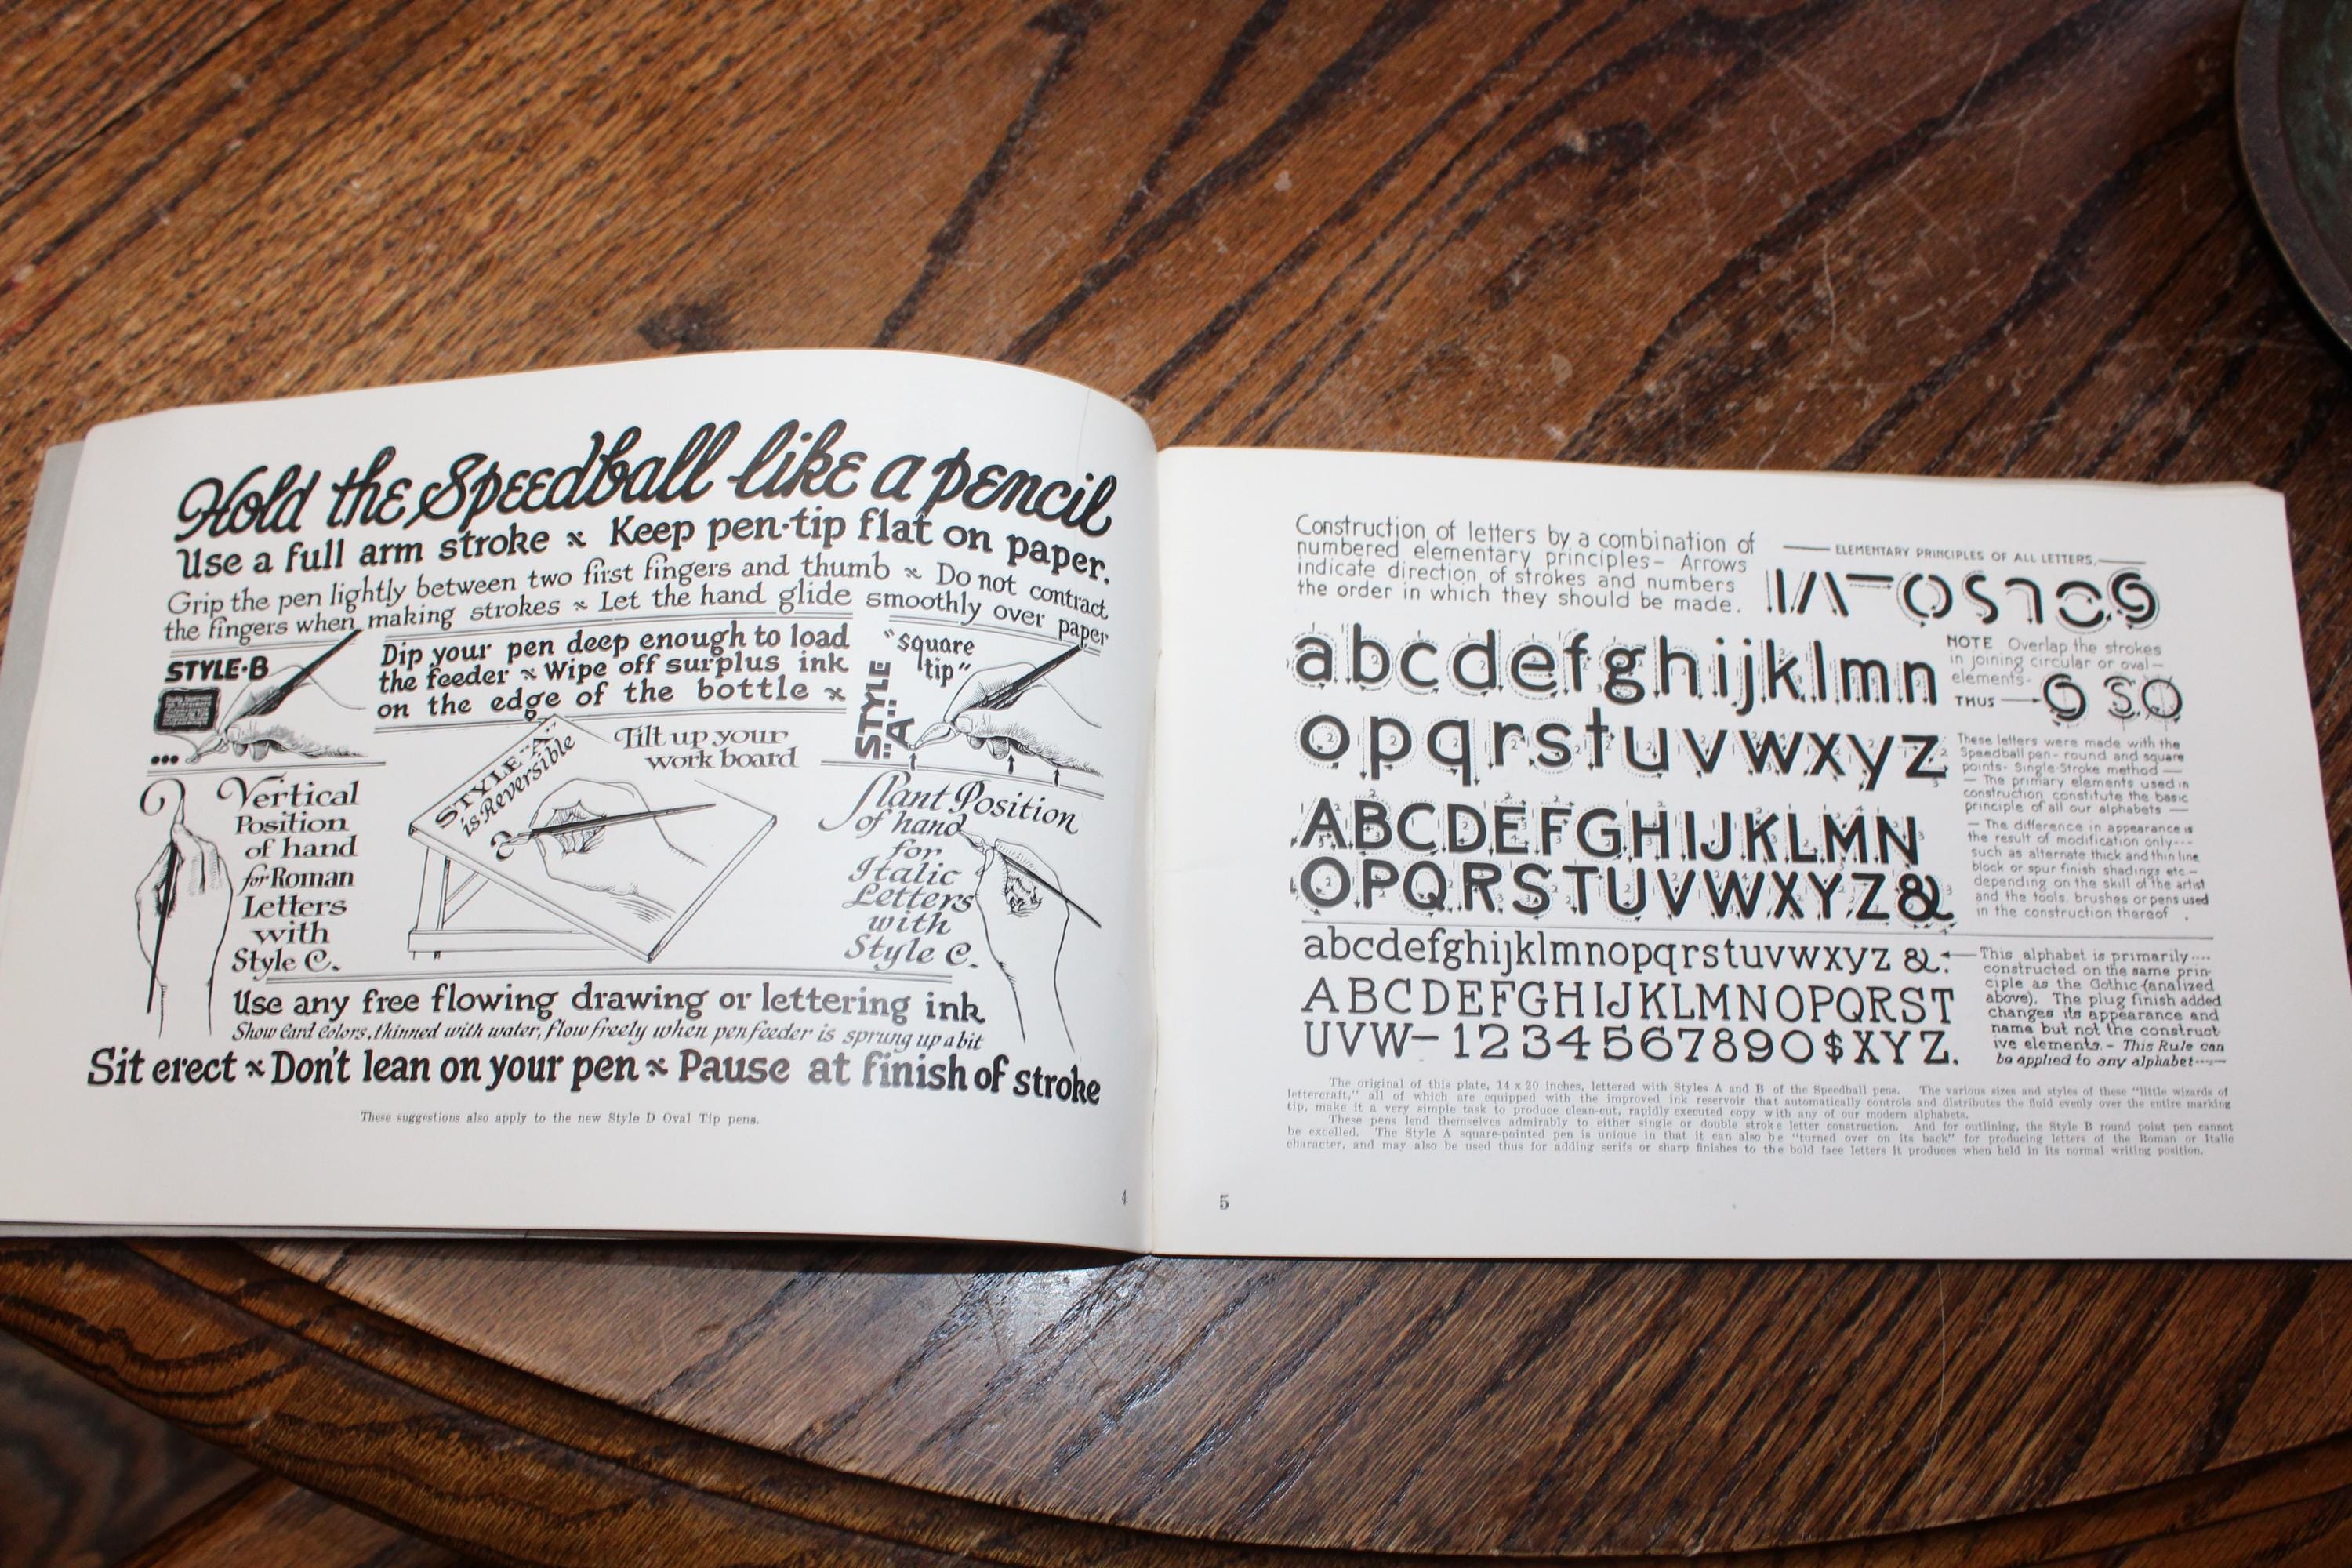 Hold the Speedball like a pencil
Use a full arm stroke × Keep pen-tip flat on paper.
Grip the pen lightly between two first fingers and thumb × Do not contract
the fingers when making strokes × Let the hand glide smoothly over paper
STYLE-B
Dip your pen deep enough to load
the feeder × Wipe off surplus ink
on the edge of the bottle ×
"square
tip"
STYLE
"A"
STYLE "A"
is Reversible
Tilt up your
work board
Vertical
Position
of hand
for Roman
Letters
with
Style C.
Slant Position
of hand
for
Italic
Letters
with
Style C.
Use any free flowing drawing or lettering ink
Show Card Colors, thinned with water, flow freely when pen feeder is sprung up a bit
Sit erect × Don't lean on your pen × Pause at finish of stroke
These suggestions also apply to the new Style D Oval Tip pens.
4
Construction of letters by a combination of
numbered elementary principles- Arrows
indicate direction of strokes and numbers
the order in which they should be made.
ELEMENTARY PRINCIPLES OF ALL LETTERS.
abcdefghijklmn
opqrstuvwxyz
ABCDEFGHIJKLMN
OPQRSTUVWXYZ&
NOTE Overlap the strokes
in joining circular or oval-
elements-
THUS
These letters were made with the
Speedball pen- round and square
points- Single Stroke method —
— The primary elements used in
construction constitute the basic
principle of all our alphabets —
— The difference in appearance is
the result of modification only---
such as alternate thick and thin line
block or spur finish shadings etc-
depending on the skill of the artist
and the tools, brushes or pens used
in the construction thereof.
abcdefghijklmnopqrstuvwxyz &.
ABCDEFGHIJKLMNOPQRST
UVW- 1234567890$XYZ.
This alphabet is primarily....
constructed on the same prin-
ciple as the Gothic (analized
above). The plug finish added
changes its appearance and
name but not the construct-
ive elements. - This Rule can
be applied to any alphabet----
The original of this plate, 14 x 20 inches, lettered with Styles A and B of the Speedball pens. The various sizes and styles of these "little wizards of
lettercraft," all of which are equipped with the improved ink reservoir that automatically controls and distributes the fluid evenly over the entire marking
tip, make it a very simple task to produce clean-cut, rapidly executed copy with any of our modern alphabets.
These pens lend themselves admirably to either single or double stroke letter construction. And for outlining, the Style B round point pen cannot
be excelled. The Style A square-pointed pen is unique in that it can also be "turned over on its back" for producing letters of the Roman or Italic
character, and may also be used thus for adding serifs or sharp finishes to the bold face letters it produces when held in its normal writing position.
5